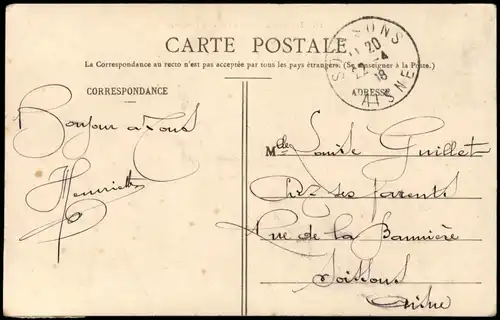 CARTE POSTALE
La Correspondance au recto n'est pas acceptée par tous les pays étrangers. (Se renseigner à la Poste.)
CORRESPONDANCE
ADRESSE
SOISSONS
20
22-4
18
AISNE
Bonjour à tous
Henriette
Mlle Louise Guillet
Chez ses parents
Rue de la Bannière
Soissons
Aisne